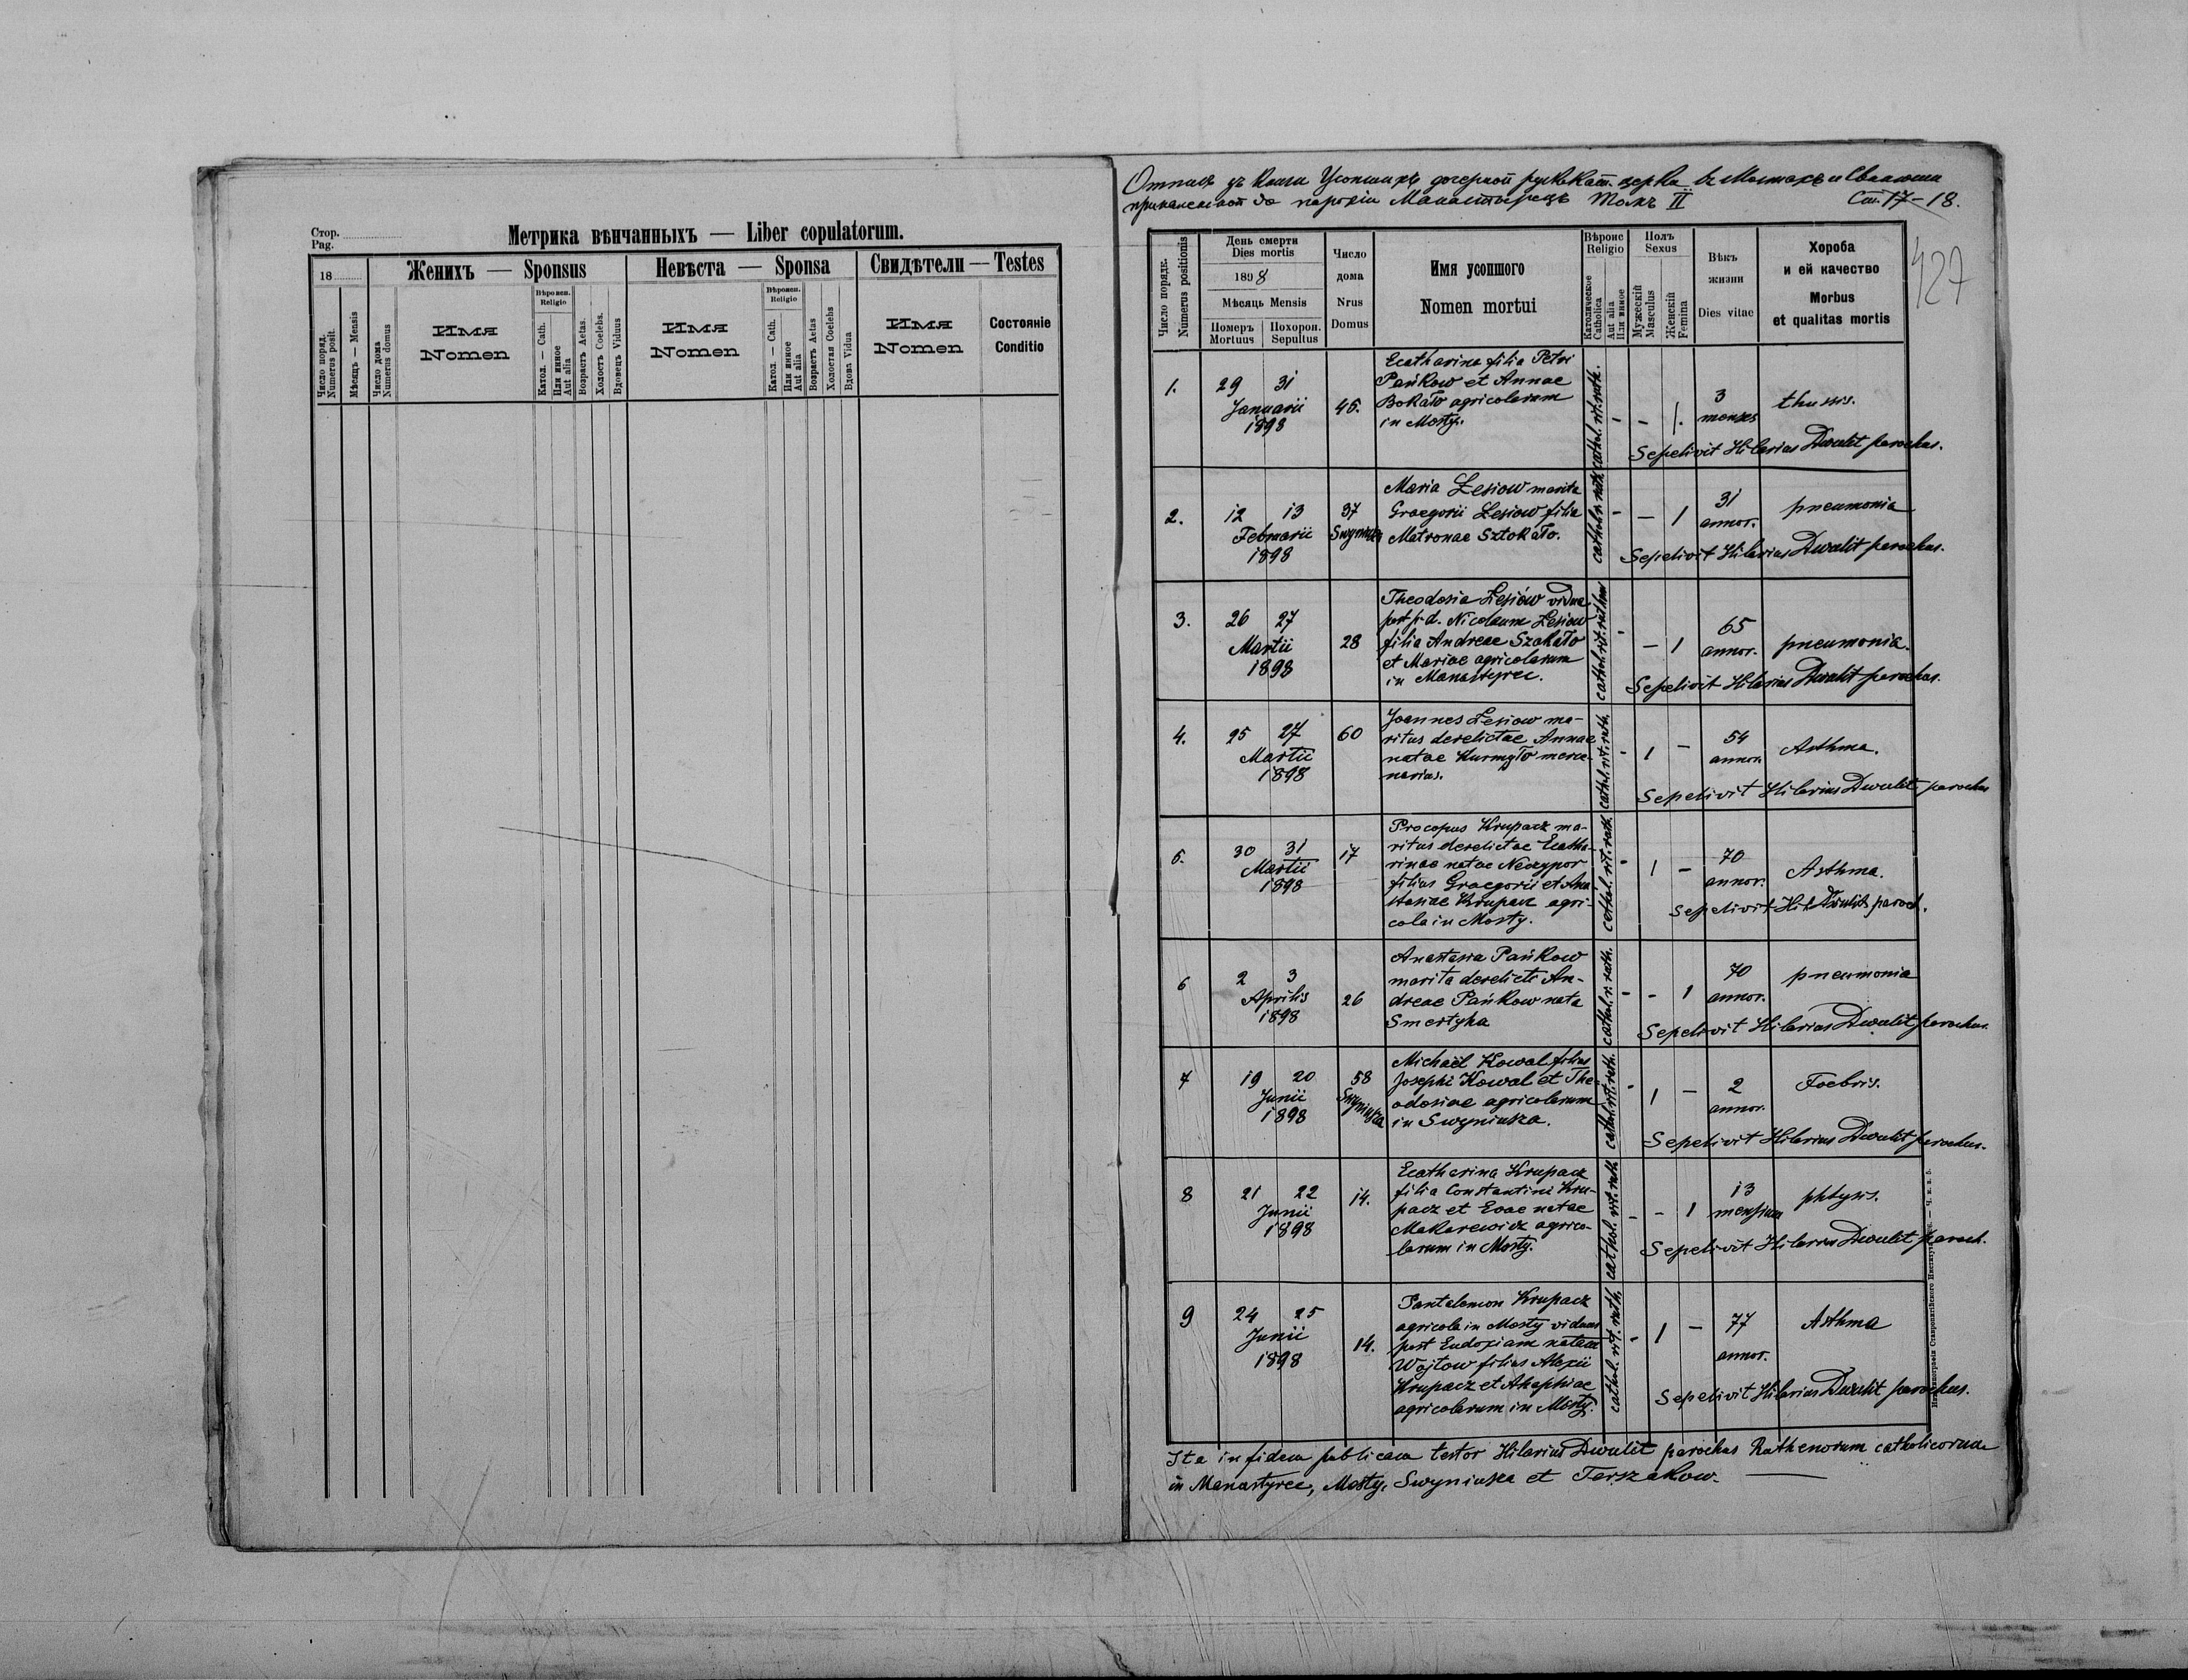 Стор.
Pag.
Метрика вѣнчанныхъ — Liber copulatorum.
18
Женихъ — Sponsus
Невѣста — Sponsa
Свидѣтели — Testes
Число поряд.
Numerus posit.
Мѣсяцъ — Mensis
Число дома
Numerus domus
Имя
Nomen
Вѣроисп.
Religio
Катол. — Cath.
Или инное
Aut alia
Возрастъ Aetas.
Холостъ Coelebs.
Вдовецъ Viduus
Имя
Nomen
Вѣроисп.
Religio
Катол. — Cath.
Или инное
Aut alia
Возрастъ Aetas
Холостая Coelebs
Вдова Vidua
Имя
Nomen
Состояніе
Conditio
Отпись зъ Книги Усопшихъ дочерной руско кат. церкви въ Мостахъ и
прикаленной до парохіи Манастырець Томъ II Стр. 17-18.
427
Число порядк.
Numerus positionis
День смерти
Dies mortis
1898
Мѣсяць Mensis
Померъ
Mortuus
Похорон.
Sepultus
Число
дома
Nrus
Domus
Имя усопшого
Nomen mortui
Вѣроис
Religio
Католическое
Catholica
Aut alia
Или инное
Полъ
Sexus
Мужескій
Masculus
Женскій
Femina
Вѣкъ
жизни
Dies vitae
Хороба
и ей качество
Morbus
et qualitas mortis
1. 29 31
Januarii
1898
45.
Ecatharina filia Petri
Pańkow et Annae
Bokało agricolarum
in Mosty.
cathol. rit. ruth.
- - 1.
3
menses
thussis.
Sepelivit Hilarius Dwulit parochus.
2. 12 13
Februarii
1898
37
Swyniusza
Maria Łesiow marita
Graegorii Łesiow filia
Matronae Sztokało.
cathol. r. ruth.
- - 1
31
annor.
pneumonia
Sepelivit Hilarius Dwulit parochus.
3. 26 27
Martii
1898
28
Theodosia Łesiów vidua
post p. d. Nicolaum Łesiow
filia Andreae Szakało
et Mariae agricolarum
in Manastyrec.
cathol. rit. ruthen
- - 1
65
annor.
pneumonia.
Sepelivit Hilarius Dwulit parochus.
4. 25 27
Martii
1898
60
Joannes Łesiow ma-
ritus derelictae Annae
natae Kurmyło merce-
narius.
cathol. rit. ruth.
- 1 -
54
annor.
Asthma.
Sepelivit Hilarius Dwulit parochus
5. 30 31
Martii
1898
17
Procopus Krupacz ma-
ritus derelictae Ecatha-
rinae natae Neczypor
filius Graegorii et Ana-
stasiae Krupacz agri-
cola in Mosty.
cathol. rit. ruth.
- 1 -
70
annor.
Asthma.
Sepelivit Hil. Dwulit paroch.
6 2 3
Aprilis
1898
26
Anastasia Pańkow
marita derelicti An-
dreae Pańkow nata
Smertyha
cathol. r. ruth.
- - 1
70
annor.
pneumonia
Sepelivit Hilarius Dwulit parochus.
7 19 20
Junii
1898
58
Swyniusza
Michaël Kowal filius
Josephi Kowal et The-
odosiae agricolarum
in Swyniusza.
cathol. rit. ruth.
- 1 -
2
annor.
Foebris.
Sepelivit Hilarius Dwulit parochus.
8 21 22
Junii
1898
14.
Ecatharina Krupacz
filia Constantini Kru-
pacz et Evae natae
Makarewicz agrico-
larum in Mosty.
cathol. rit. ruth
- - 1
13
mensium
phtysis.
Sepelivit Hilarius Dwulit paroch.
9 24 25
Junii
1898
14.
Pantelemon Krupacz
agricola in Mosty viduus
post Eudoxiam natam
Wojtow filius Alexii
Krupacz et Ahaphiae
agricolarum in Mosty.
cathol. rit. ruth.
- 1 -
77
annor.
Asthma
Sepelivit Hilarius Dwulit parochus.
Ita in fidem publicam testor Hilarius Dwulit parochus Ruthenorum catholicorum
in Manastyrec, Mosty, Swyniusza et Terszakow.